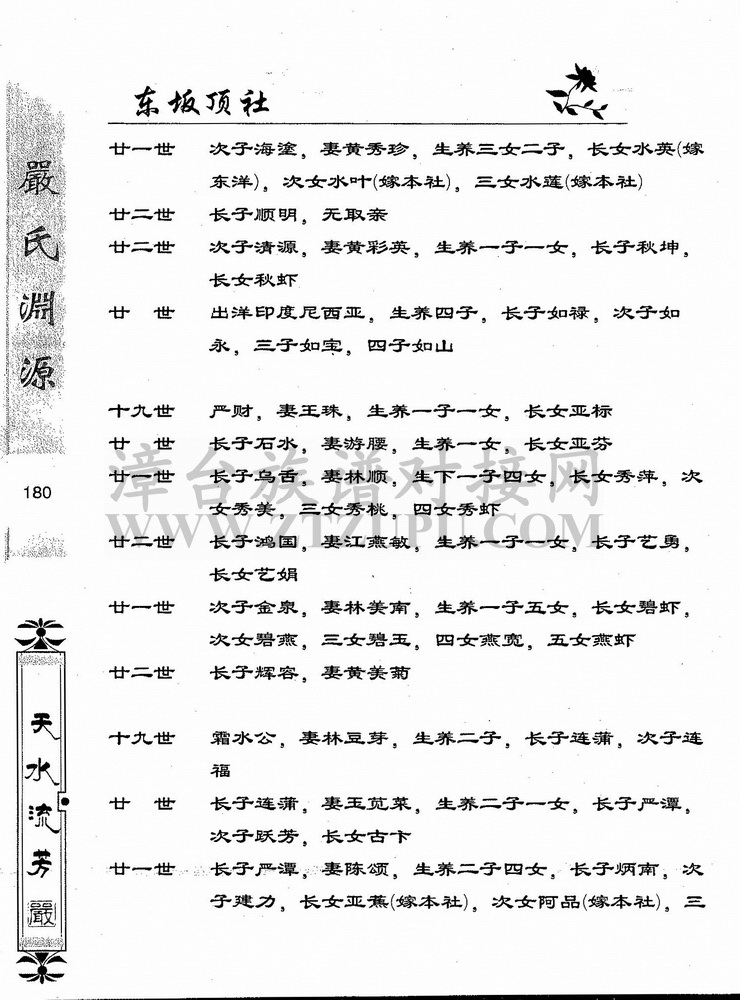 东坂顶社
嚴氏淵源
180
天水流芳
嚴
廿一世 次子海塗，妻黄秀珍，生养三女二子，长女水英(嫁
东洋)，次女水叶(嫁本社)，三女水莲(嫁本社)
廿二世 长子顺明，无取亲
廿二世 次子清源，妻黄彩英，生养一子一女，长子秋坤，
长女秋虾
廿 世 出洋印度尼西亚，生养四子，长子如禄，次子如
永，三子如宝，四子如山
十九世 严财，妻王珠，生养一子一女，长女亚标
廿 世 长子石水，妻游腰，生养一女，长女亚芬
廿一世 长子乌舌，妻林顺，生下一子四女，长女秀萍，次
女秀美，三女秀桃，四女秀虾
廿二世 长子鸿国，妻江燕敏，生养一子一女，长子艺勇，
长女艺娟
廿一世 次子金泉，妻林美南，生养一子五女，长女碧虾，
次女碧燕，三女碧玉，四女燕宽，五女燕虾
廿二世 长子辉容，妻黄美菊
十九世 霜水公，妻林豆芽，生养二子，长子连蒲，次子连
福
廿 世 长子连蒲，妻玉苋菜，生养二子一女，长子严潭，
次子跃芳，长女古卞
廿一世 长子严潭，妻陈颂，生养二子四女，长子炳南，次
子建力，长女亚蕉(嫁本社)，次女阿品(嫁本社)，三
漳台族谱对接网
WWW.ZTZUPU.COM